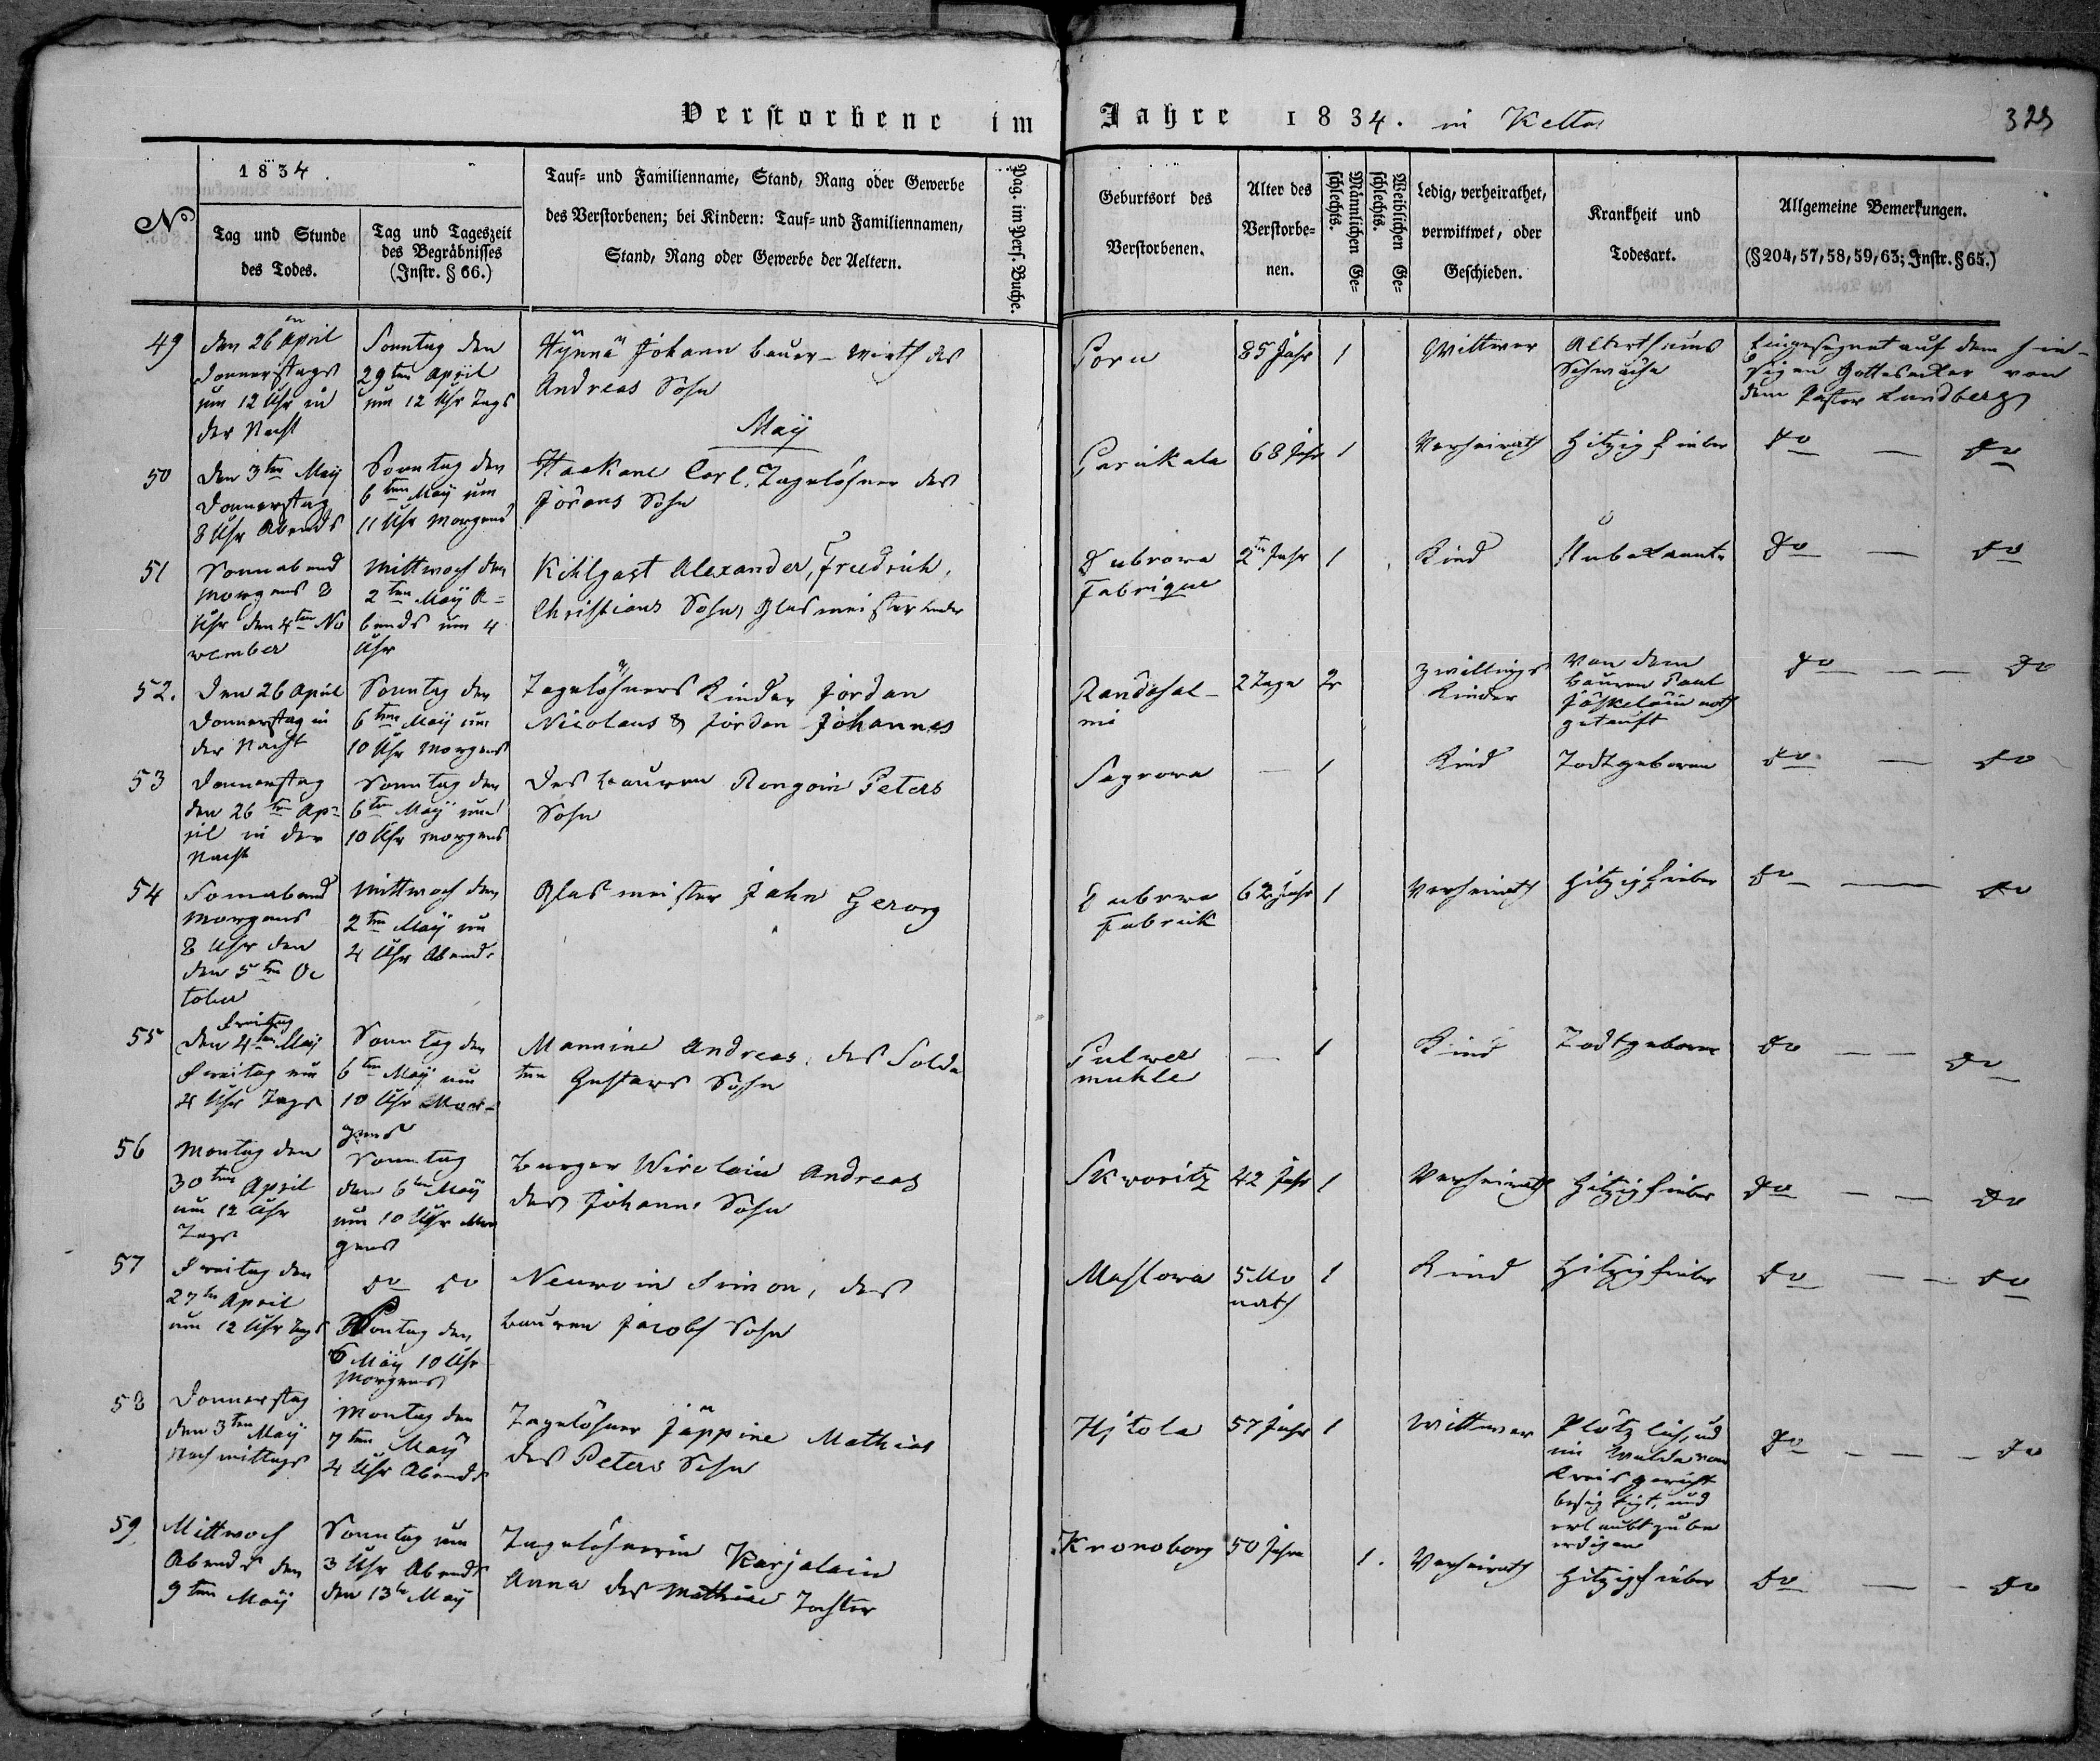 Verstorbene im Jahre 1834. in Kelto
323
1834.
No
Tag und Stunde des Todes.
Tag und Tageszeit des Begräbnisses (Instr. § 66.)
Tauf= und Familienname, Stand, Rang oder Gewerbe des Verstorbenen; bei Kindern: Tauf= und Familiennamen, Stand, Rang oder Gewerbe der Aeltern.
Pag. im Pers. Buche.
Geburtsort des Verstorbenen.
Alter des Verstorbe=nen.
Männlichen Ge=schlechts.
Weiblichen Ge=schlechts.
Ledig, verheirathet, verwittwet, oder Geschieden.
Krankheit und Todesart.
Allgemeine Bemerkungen. (§ 204, 57, 58, 59, 63; Instr. § 65.)
49
den 26 April
Donnerstags
um 12 Uhr in
der Nacht
Sonntag den
29ten April
um 12 Uhr Tags
Hÿnnä Johann bauer-Wirth des
Andreas Sohn
85 Jahr
1
Wittwer
Alterthums
Schwäche
Eingesegnet auf dem hie-
sigen Gottesacker von
dem Pastor Lundberg
Maÿ
50
Den 3ten Maÿ
Donnerstag
8 Uhr Abends
Sonntag den
6ten Maÿ um
11 Uhr Morgens
Haakane Carl, Tagelöhner des
Jörans Sohn
Parikala
68 Jahr
1
Verheirath
Hitzigfieber
do — do
51
Sonnabend
Morgens 8
Uhr den 4ten No
vember
Mittwoch den
2ten Maÿ A-
bends um 4
Uhr
Kihlgast Alexander, Friedrich,
Christians Sohn, Glasmeister
Dubrowa
Fabrique
2 Jahr
1
Kind
Unbekannt
do — do
52.
Den 26 April
Donnerstag in
der Nacht
Sonntag den
6ten Maÿ um
10 Uhr Morgens
Tagelöhners Kinder Jordan
Nicolaus & Jordan Johannes
Randasal-
mi
2 Tage
2
Zwillings
Kinder
Von dem
Bauern Paul
Jöskeläin noth
getauft
do — do
53
Donnerstag
den 26ten Ap-
ril in der
Nacht
Sonntag den
6ten Maÿ um
10 Uhr Morgens
Des Bauern Rongoin Peters
Sohn
Sagrowa
—
1
Kind
Todtgeboren
do — do
54
Sonnabend
Morgens
8 Uhr den
den 5ten Oc
tober
Mittwoch den
2ten Maÿ um
4 Uhr Abends
Glasmeister Jahn Georg
Dubrwa
Fabrick
62 Jahr
1
Verheirath
Hitzigfieber
do — do
55
Freitag
den 4ten Maÿ
Freitag um
4 Uhr Tags
Sonntag den
6ten Maÿ um
10 Uhr Mor-
gens
Mannine Andreas, des Solda
ten Gustavs Sohn
Pulwer
muhle
—
1
Kind
Todtgeboren
do — do
56
Montag den
30ten April
um 12 Uhr
Tags
Sonntag
den 6ten Maÿ
um 10 Uhr Mor
gens
Burger Wirolain Andreas
des Johanns Sohn
Skworitz
42 Jahr
1
Verheirath
Hitzigfieber
do — do
57
Freitag den
27ten April
um 12 Uhr Tags
do do
Sontag den
6 Maÿ 10 Uhr
Morgens
Neuwoin Simon, des
Bauren Jacobs Sohn
Maslowa
5 Mo
nath
1
Kind
Hitzigfieber
do — do
58
Donnerstag
den 3ten Maÿ
Nachmittags
Montag den
7ten Maÿ
4 Uhr Abends
Tagelöhner Jäppine Mathias
des Peters Sohn
Hjtola
57 Jahr
1
Wittwer
Plötzlich, und
im Walde vom
Kreisgericht
besichtigt, und
erlaubt zu be
erdigen
do — do
59
Mittwoch
Abends den
9ten Maÿ
Sonntag um
3 Uhr Abends
den 13ten Maÿ
Tagelöhnerin Karjalain
Anna des Mathias Tochter
Kronoborg
50 Jahre
1.
Verheirath
Hitzigfieber
do — do